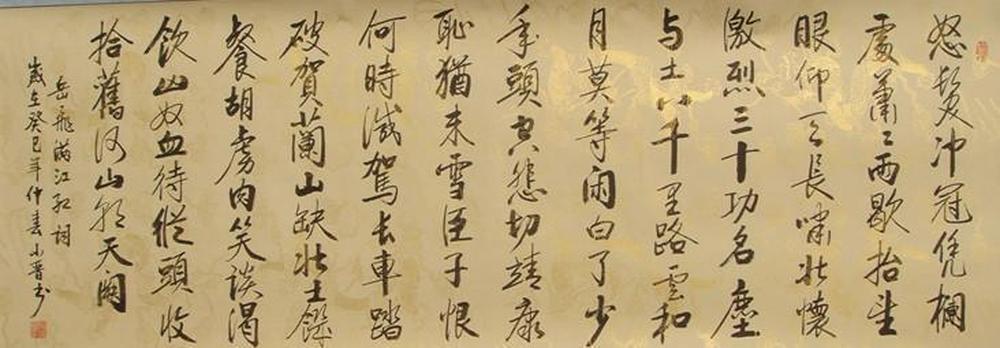 怒髮冲冠凭欄
處蕭〻雨歇抬望
眼仰天長嘯壯懷
激烈三十功名塵
与土八千里路雲和
月莫等闲白了少
年頭空悲切靖康
恥猶未雪臣子恨
何時滅駕长車踏
破賀蘭山缺壯士饑
餐胡虜肉笑談渴
飲匈奴血待從頭收
拾舊河山朝天闕
岳飛滿江紅詞
歲在癸巳年仲春小晋书